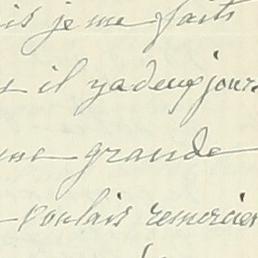 is je me fais
il y a deux jours
une grande
voulais remercier